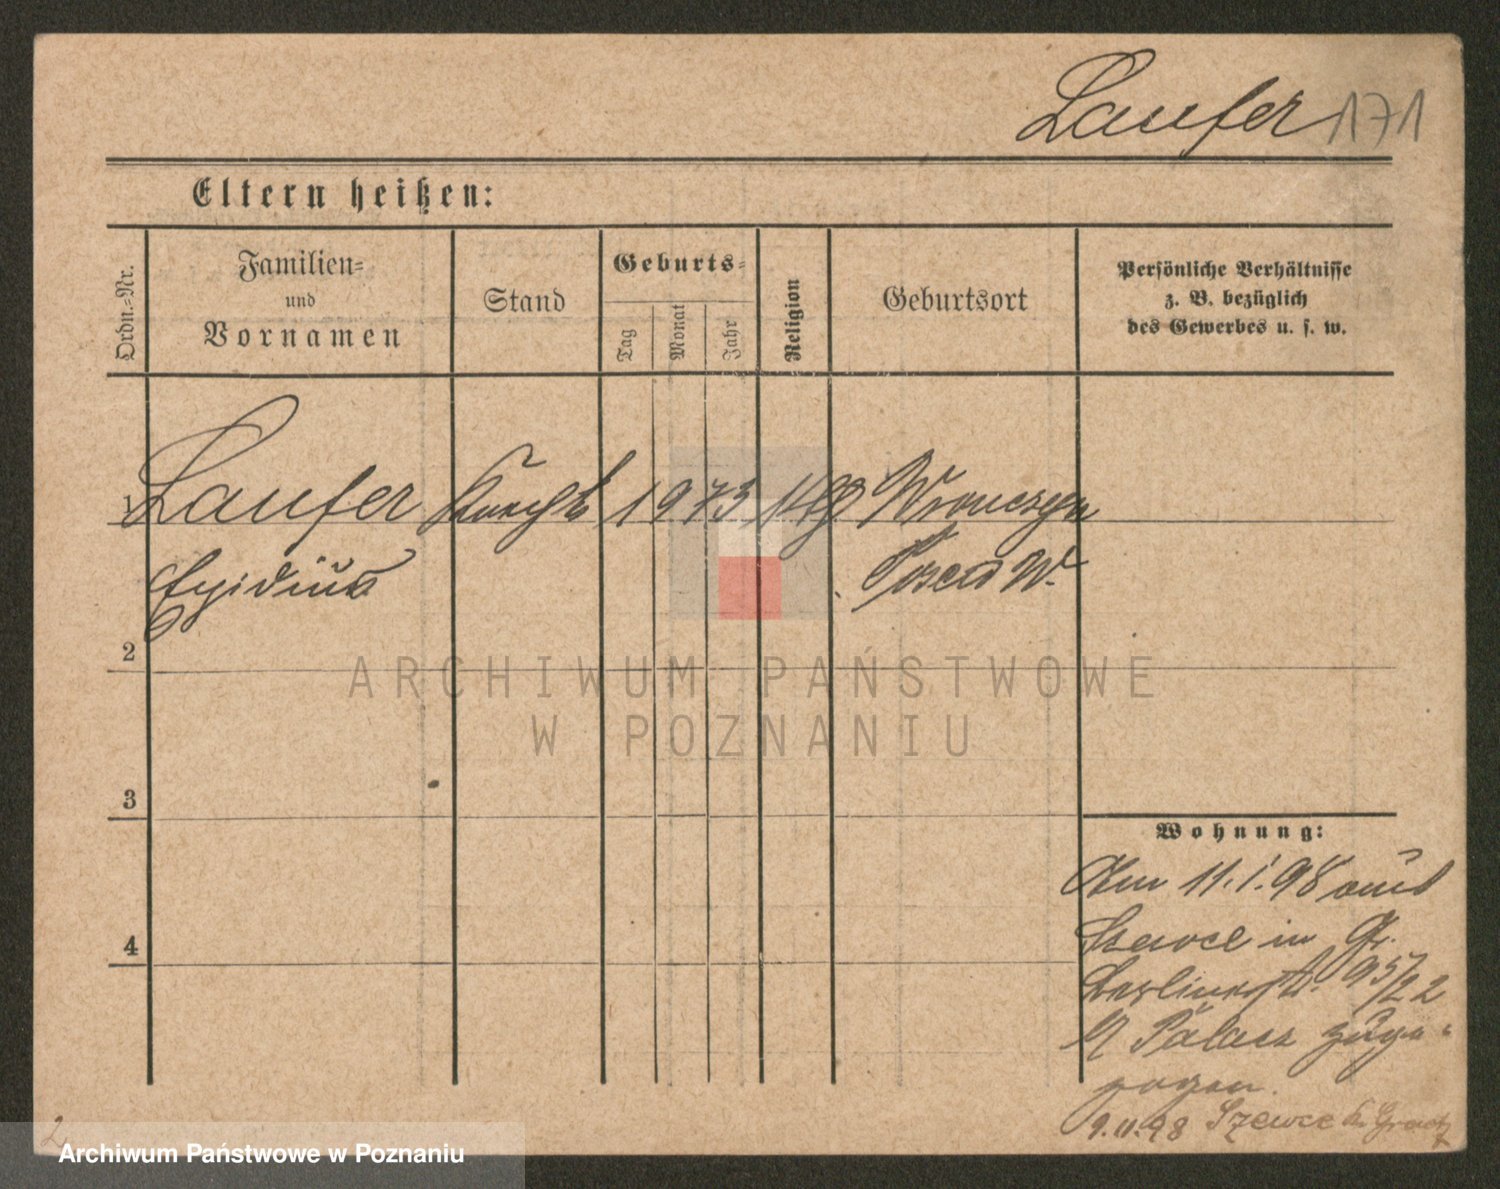 Laufer 171
Eltern heißen:
Ordn.-Nr.
Familien-
und
Vornamen
Stand
Geburts-
Tag
Monat
Jahr
Religion
Geburtsort
Persönliche Verhältnisse
z. B. bezüglich
des Gewerbes u. s. w.
1 Laufer 1 9 73 Wronczyn
Egidius Posen W.
2
3
4
ARCHIWUM PAŃSTWOWE
W POZNANIU
Wohnung:
Am 11.1.98 aus
Szewce in Gr.
Berlinerstr. 95/22
zuge-
zogen.
9.11.98 Szewce Kr. Graetz
2
Archiwum Państwowe w Poznaniu